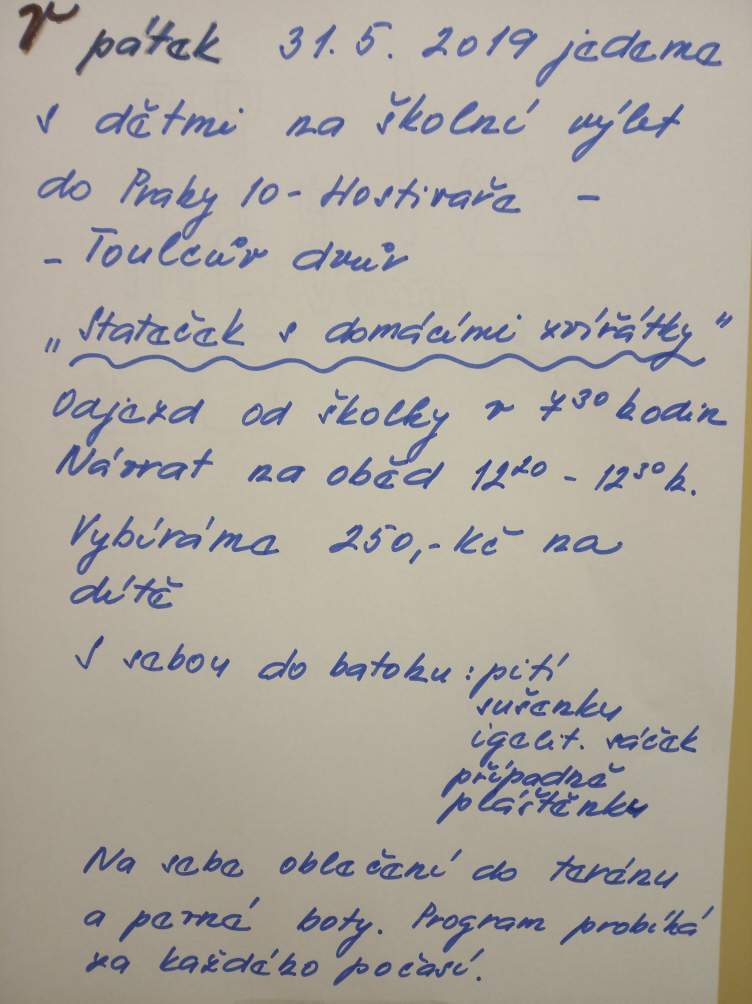 V pátek 31.5.2019 jedeme
s dětmi na školní výlet
do Prahy 10 - Hostivaře -
- Toulcův dvůr
„Stateček s domácími zvířátky"
Odjezd od školky v 7³⁰ hodin
Návrat na oběd 12²⁰ - 12³⁰ h.
Vybíráme 250,- Kč na
dítě
S sebou do batohu : pití
sušenky
igelit. sáček
případně
pláštěnku
Na sebe oblečení do terénu
a pevné boty. Program probíhá
za každého počasí.